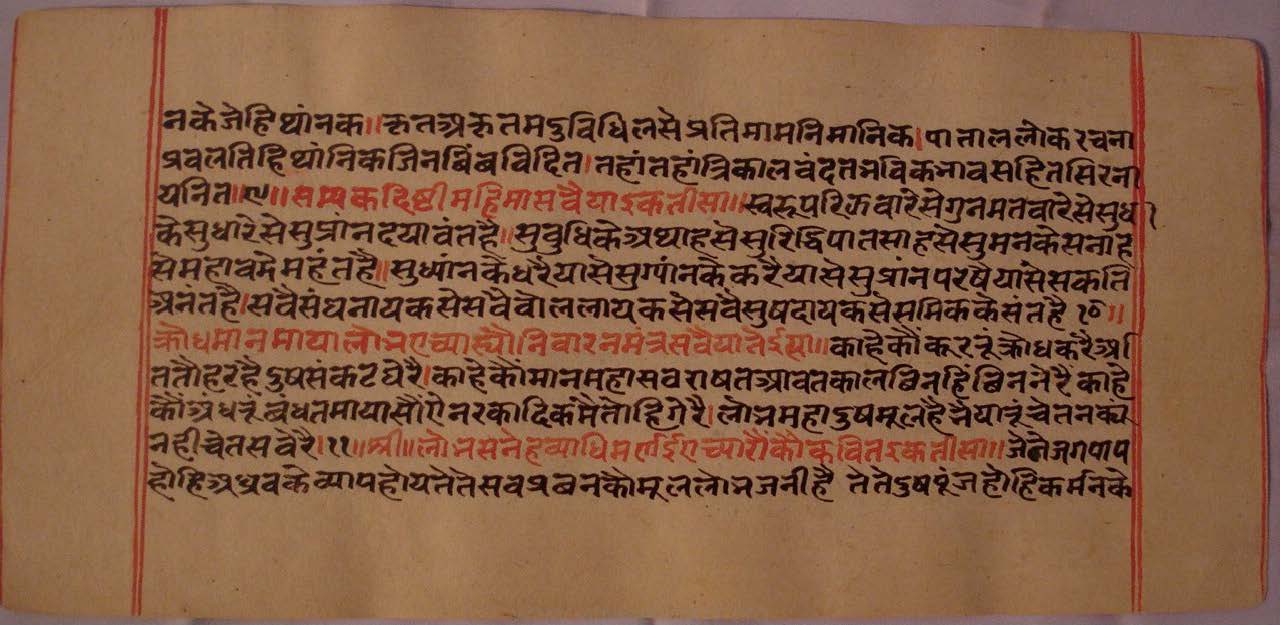 नकेजेहिथांनक॥कृतअकृतमदुविधिलसैप्रतिमामनिमानिक।पाताललोकरचना
प्रबलतिहिथांनिकजिनबिंबविदित।तहांतहांत्रिकालवंदतभविकभावसहितसिरना
यनित॥९॥सम्यकदिष्टीमहिमासवैयाइकतीसा॥स्वरूपरिझवारेसेगुनमतवारेसेसुध
केसुधारेसेसुप्रांनदयावंतहै॥सुबुधिकेअथाहसेसुरिद्धिपातसाहसेसुमनकेसनाहे
सेमहाबमेमहंतहै॥सुध्यांनकेधरैयासेसुग्यांनकेकरैयासेसुप्रांनपरषैयासेसकति
अनंतहै।सवैसंघनायकसेसवैबोललायकसेसवैसुषदायकसेसमिककेसंतहै१०॥
क्रोधमानमायालोभएच्यास्यौनिवारनमंत्रसवैयातेईसा॥काहेकौंकूरतूंक्रोधकरैअ
ततौहरहैदुषसंकटघेरै।काहेकौंमानमहासवराषतआवतकालछिनहिंछिननेरैकाहे
कौंअंधतूंबंधतमायासौंएनरकादिकमैतोहिगेरै।लोभमहादुषमूलहैभैयातूंचेतनक्यू
नहीचेतसवेरै।११॥श्री॥लोभसनेहव्याधिमईएच्यारौंकौकवितइकतीसा॥जेतेजगपाप
होहिअध्रवकेव्यापहोयतेतेसबअबनकोमूललोभजनीहै तेतेदुषपूंजहोहिकर्मनके